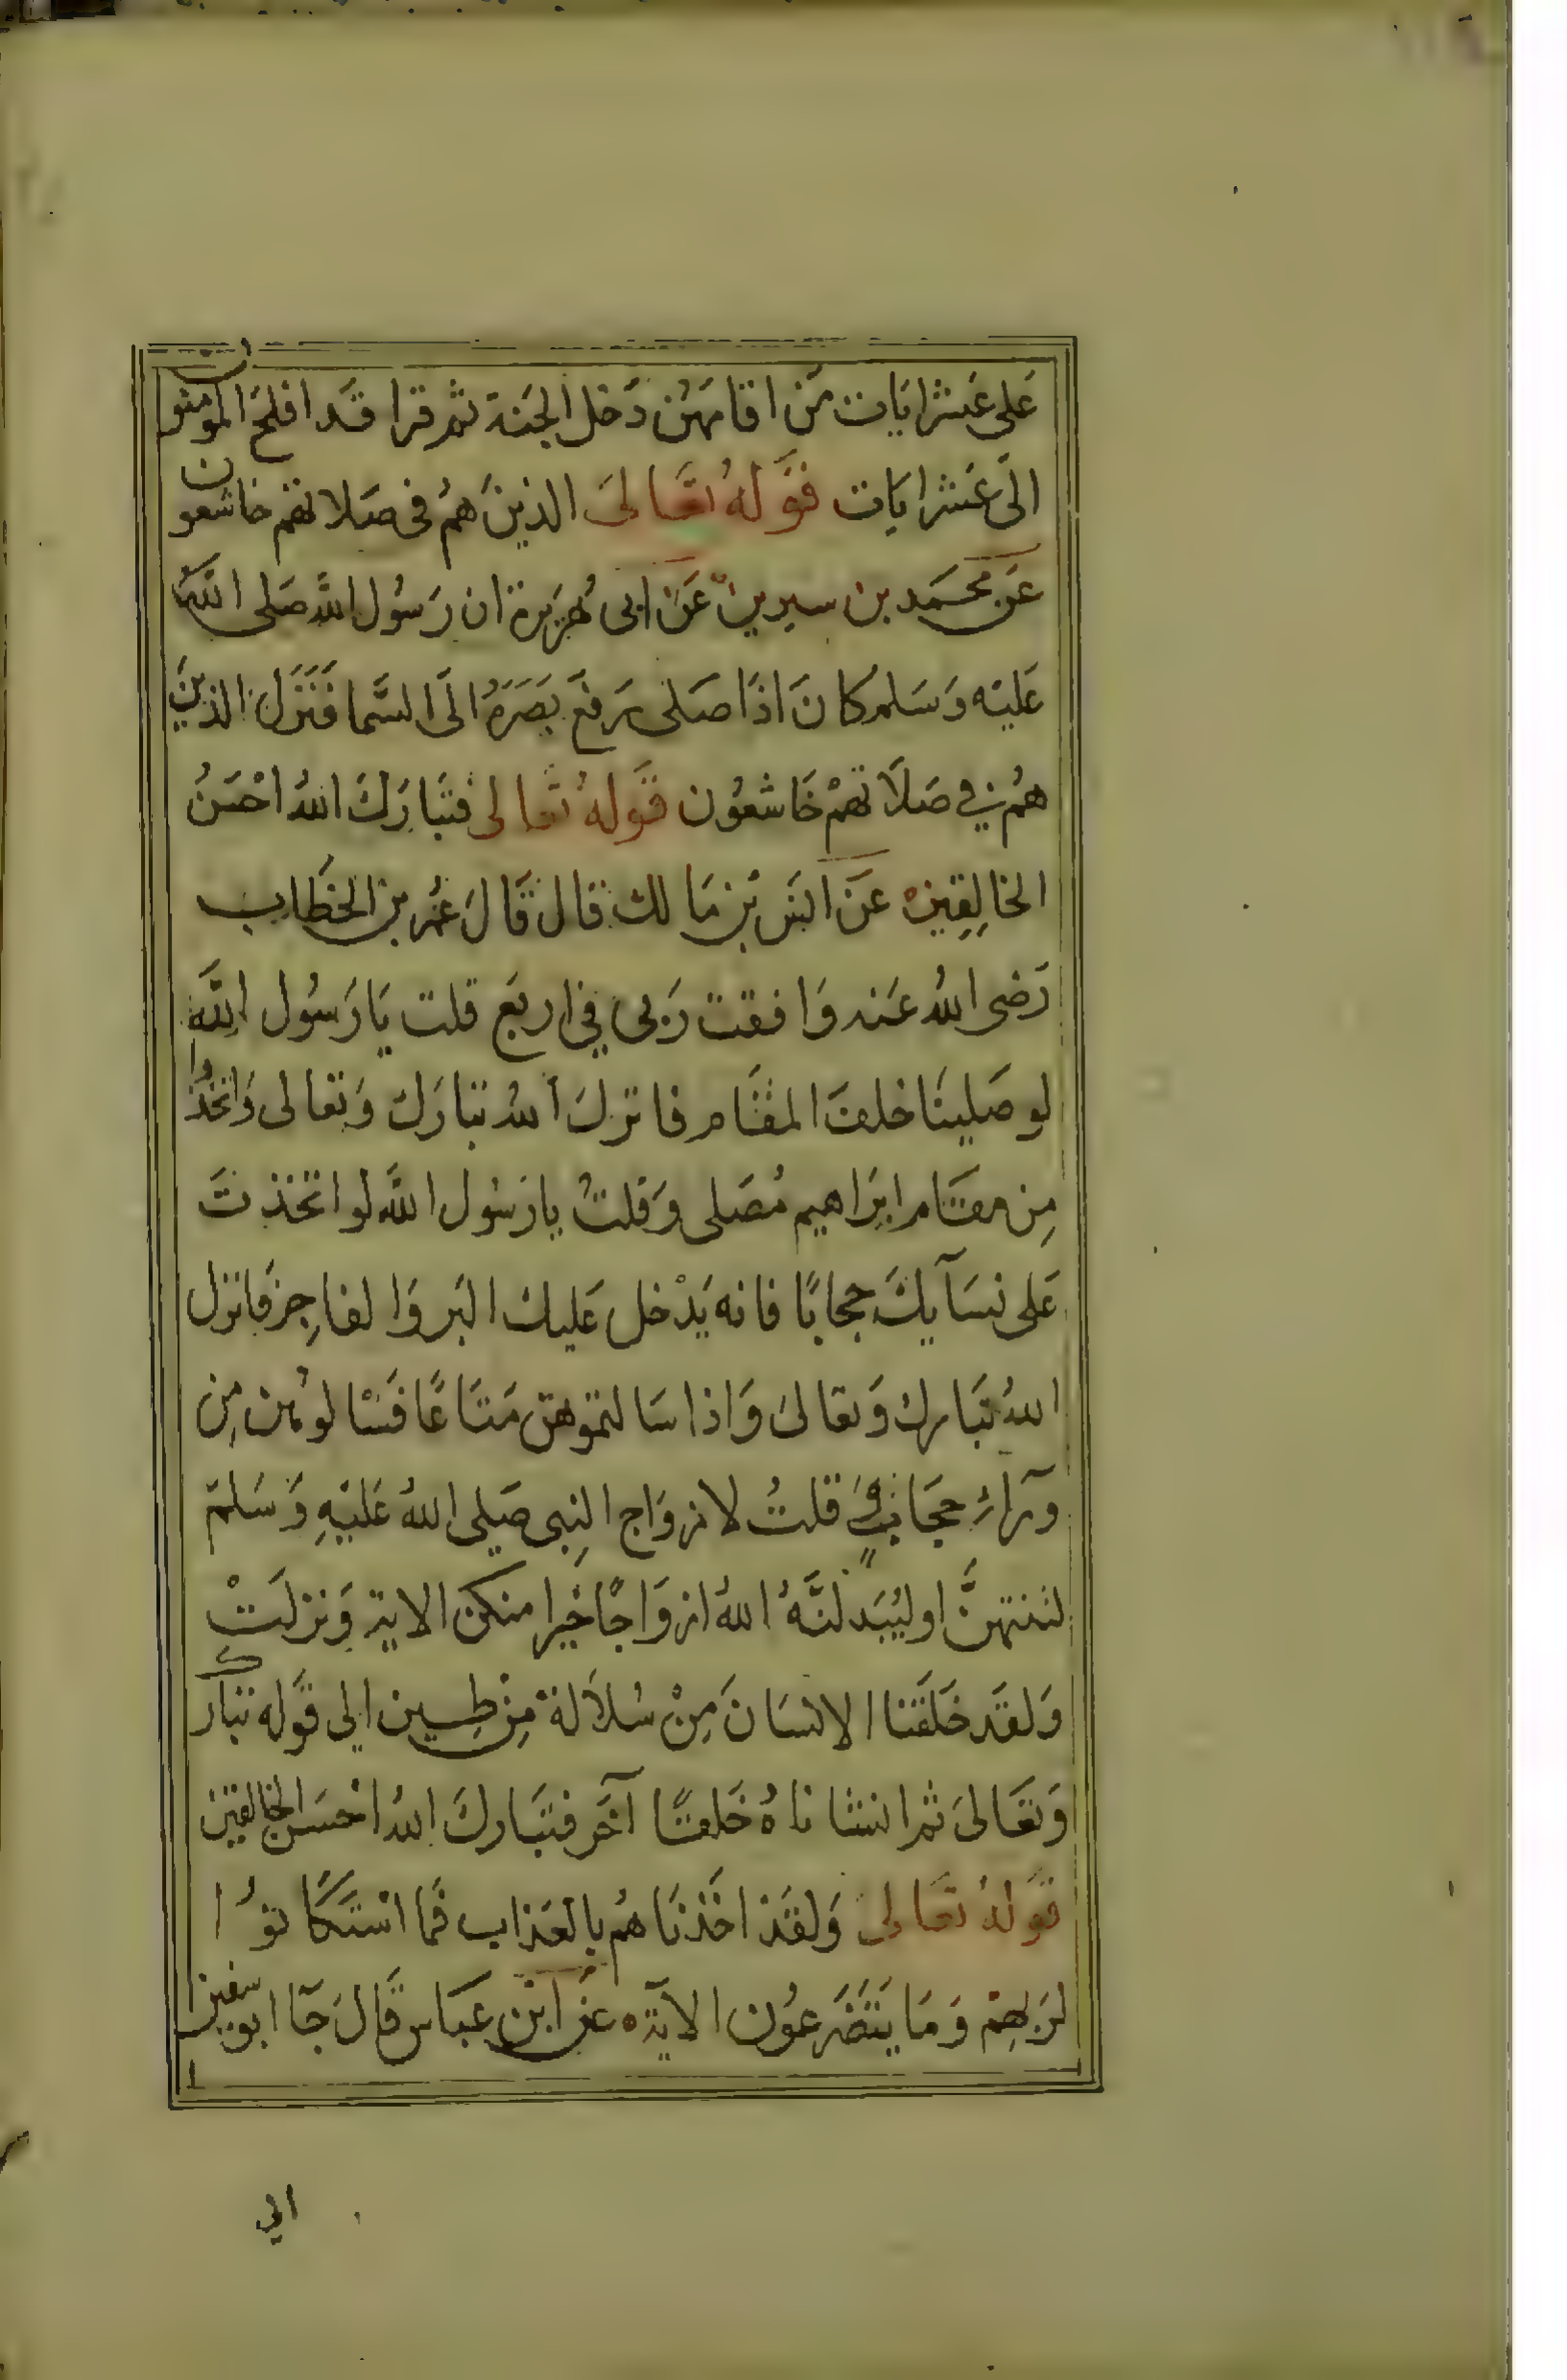 عَلى عَشرايَات مَن اقامهَن دَخل الجَنة ثم قرا قَد افلحَ المومنون
الَى عَشرايَات قوَله تعَالىَ الذينَ همُ فى صَلاتهم خاشعون
عَن محَمَد بن سيرين عَن ابى هُرَيرة ان رَسُول اللَّه صَلى اللَّه
عَليه وَسَلم كانَ اذَا صَلى يرَفعَ بصَرَهُ الَى السَّما فَنَزَلَ الذينَ
همُ في صَلَاتهمْ خَاشعوُن قَولهُ تعَالى فتبَارَكَ اللهُ احْسَنُ
الخالِقِينَ عَن انَس بن مَالك قال قَالَ عُمر بن الخطَاب
رَضى اللهُ عَنه وَافقت رَبى في اربَع قلت يَا رَسُول اللَّه
لو صَلينَا خلفَ المقَام فانزلَ اللهُ تبارَكَ وَتعالى وَاتخذُوا
مِن مقَام ابرَاهيم مُصَلى وَقلتُ يا رَسُول اللَّه لو اتخذتَ
عَلى نسَآيكَ حجابًا فانه يَدْخل عَليك البَر وَالفاجِر فانزل
اللهُ تبَارك وَتعالىَ وَاذا سَالتموهن مَتَاعًا فَسْالوهُن مِن
وَرآءِ حجَاب وَقلتُ لازوَاج النبِى صَلى اللهُ عَليَهِ وَسَلم
لتنتهنَّ اوليُبَدلنَّهُ اللهُ ازوَاجًا خَيرا منكن الاية وَنزلَتْ
وَلقَد خَلَقنا الانسَانَ مِنْ سُلاَلة مِن طِين الى قَوله تبَارك
وَتعَالىَ ثم انشاناهُ خَلقًا آخَر فتبَاركَ اللهُ احْسَن الخالقين
قَولهُ تعَالى وَلقَد اخَذنَاهُم بالعَذاب فمَا اسْتكَانوُا
لرَبهِم وَمَا يتَضَرعوُن الآية عَن ابْن عبَاس قَالَ جَآ ابو سفين
الي